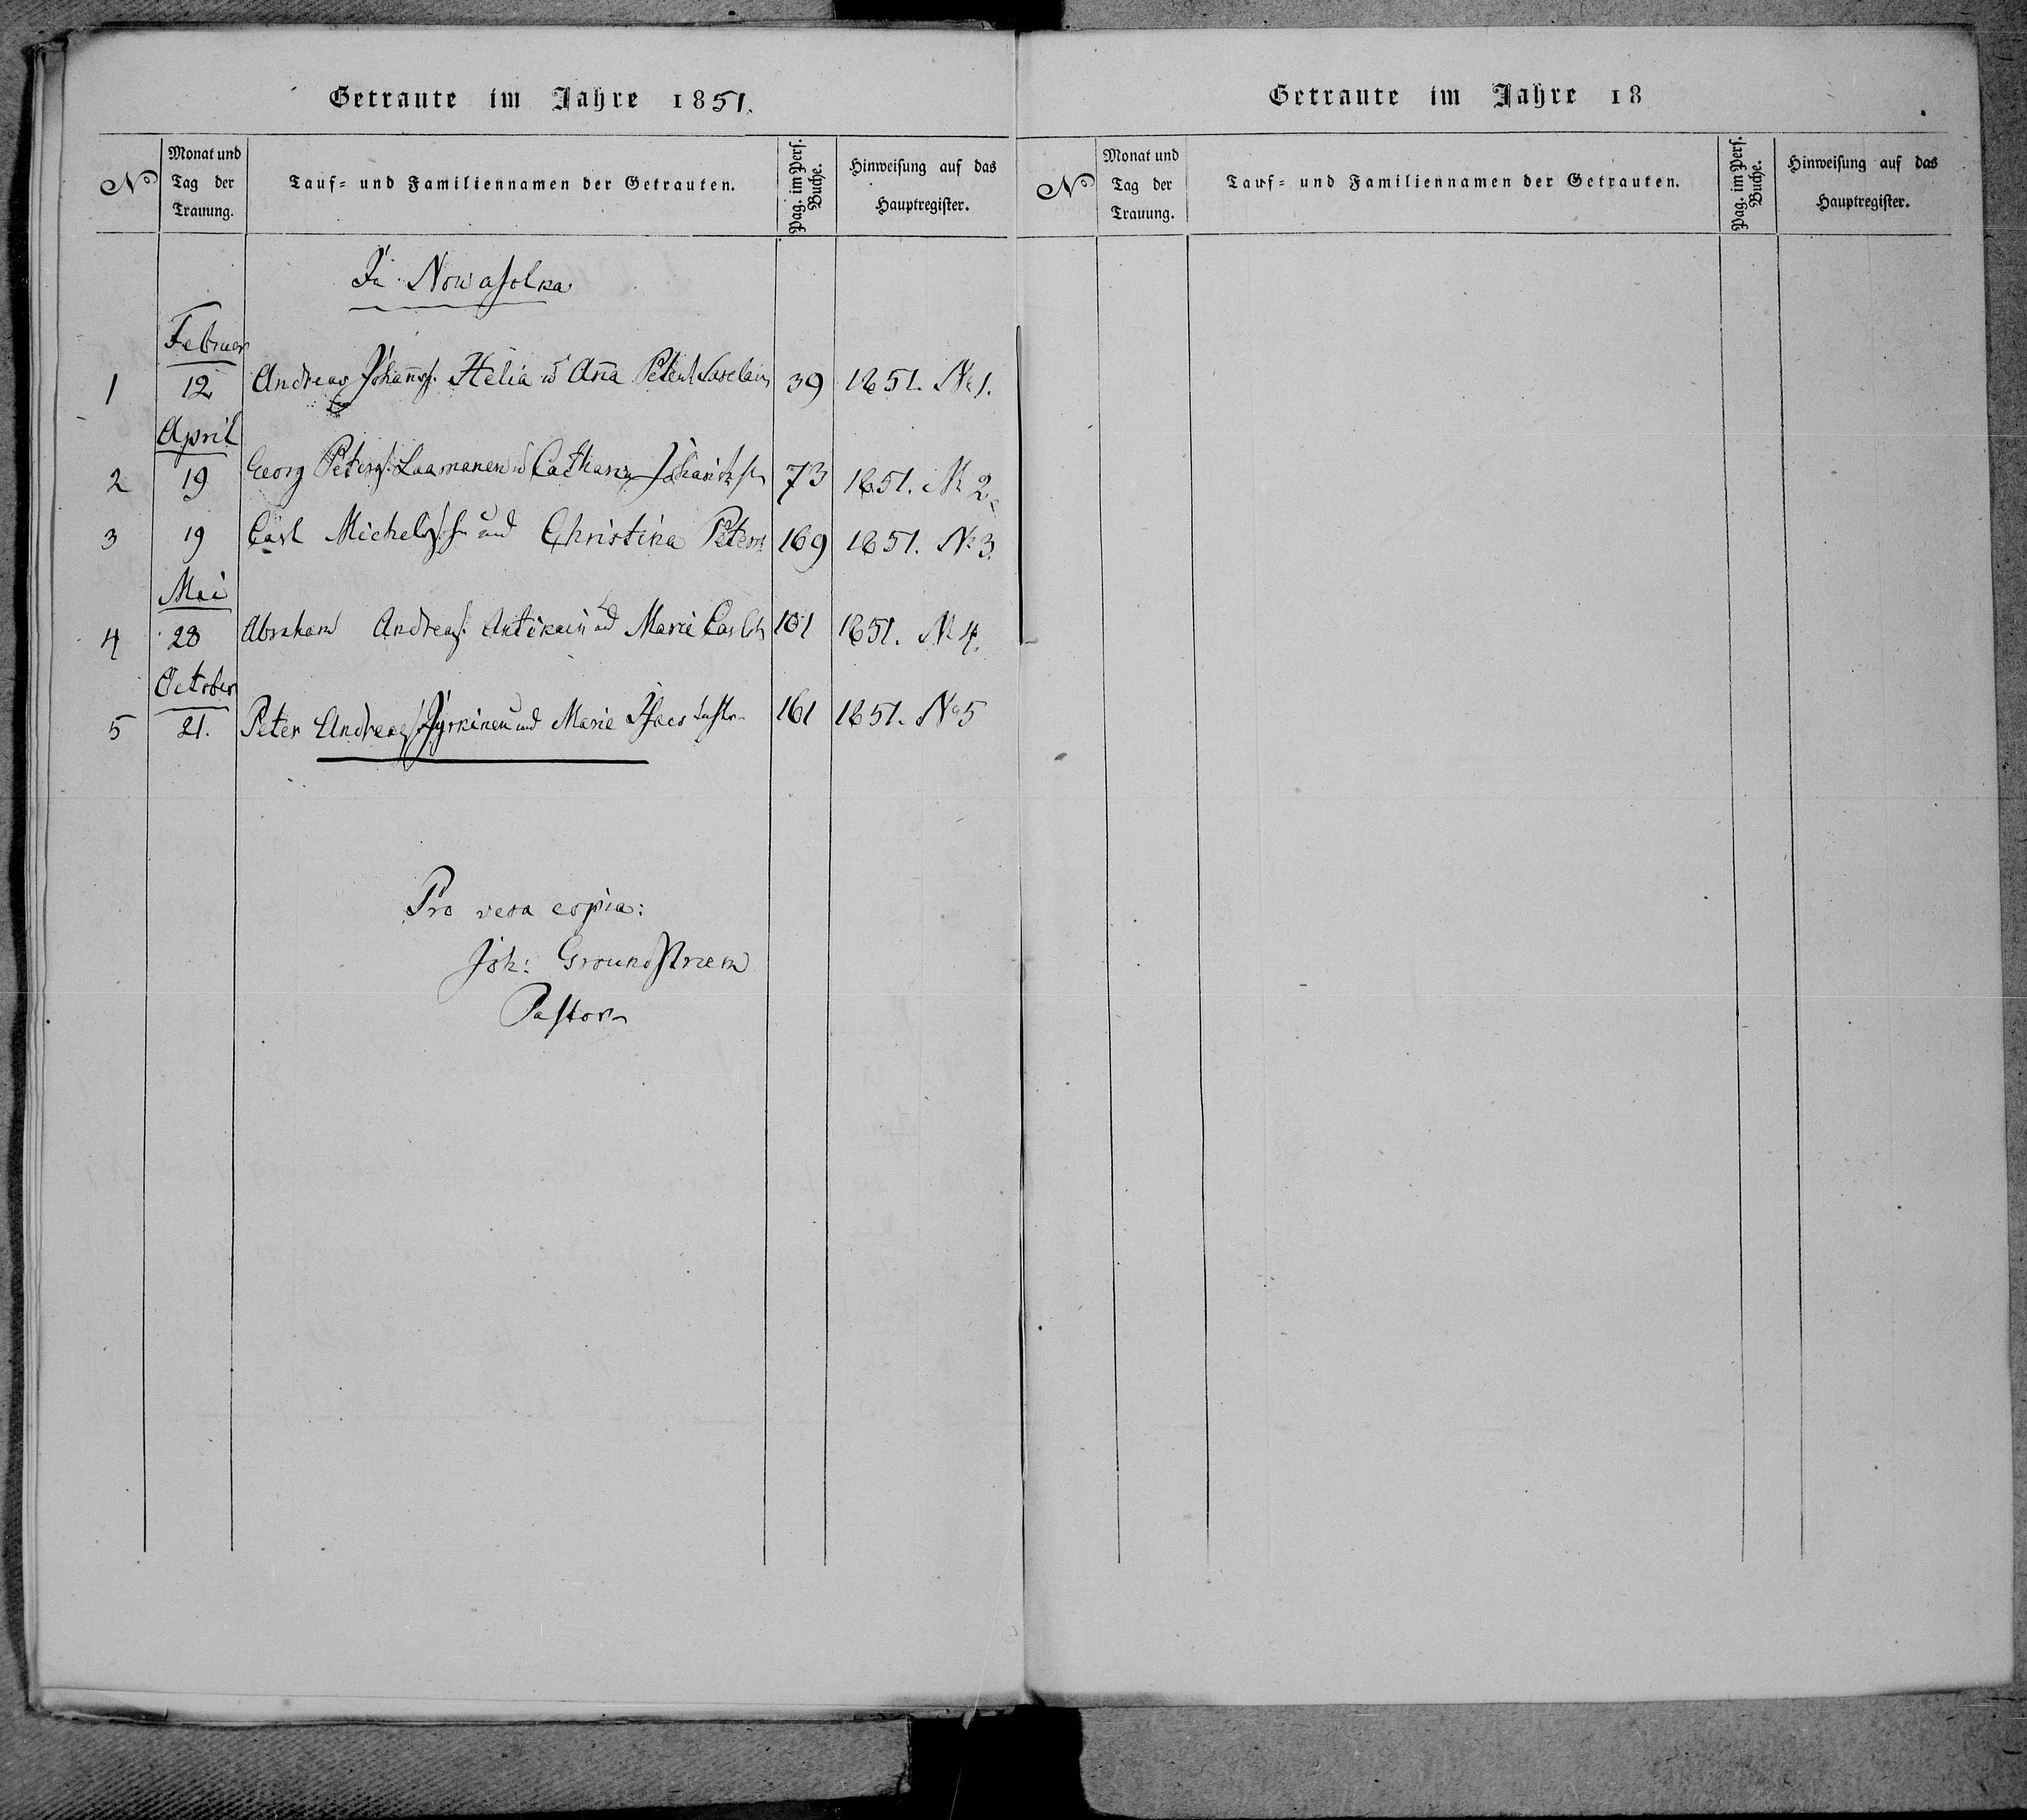 Getraute im Jahre 1851.
№ Monat und Tag der Trauung. Tauf- und Familiennamen der Getrauten. Pag. im Pers. Buche. Hinweisung auf das Hauptregister.
In Nowasolka
Februar
1 12 Andreas Johannss. Helia u Anna Peterst. Savelain 39 1851. No 1.
April
2 19 Georg Peterss. Laamanen u Catharina 73 1851. No 2.
3 19 Carl Michelss. und Christina Peterst. 169 1851. No 3.
Mai
4 28 Abraham Andreass. Antikain und Maria Carlst. 101 1851. No 4.
October
5 21. Peter Andreass. Jyrkinen und Maria Isacs 161 1851. No 5
Pro vera copia:
Joh: Groundstroem
Pastor
Getraute im Jahre 18
№ Monat und Tag der Trauung. Tauf- und Familiennamen der Getrauten. Pag. im Pers. Buche. Hinweisung auf das Hauptregister.